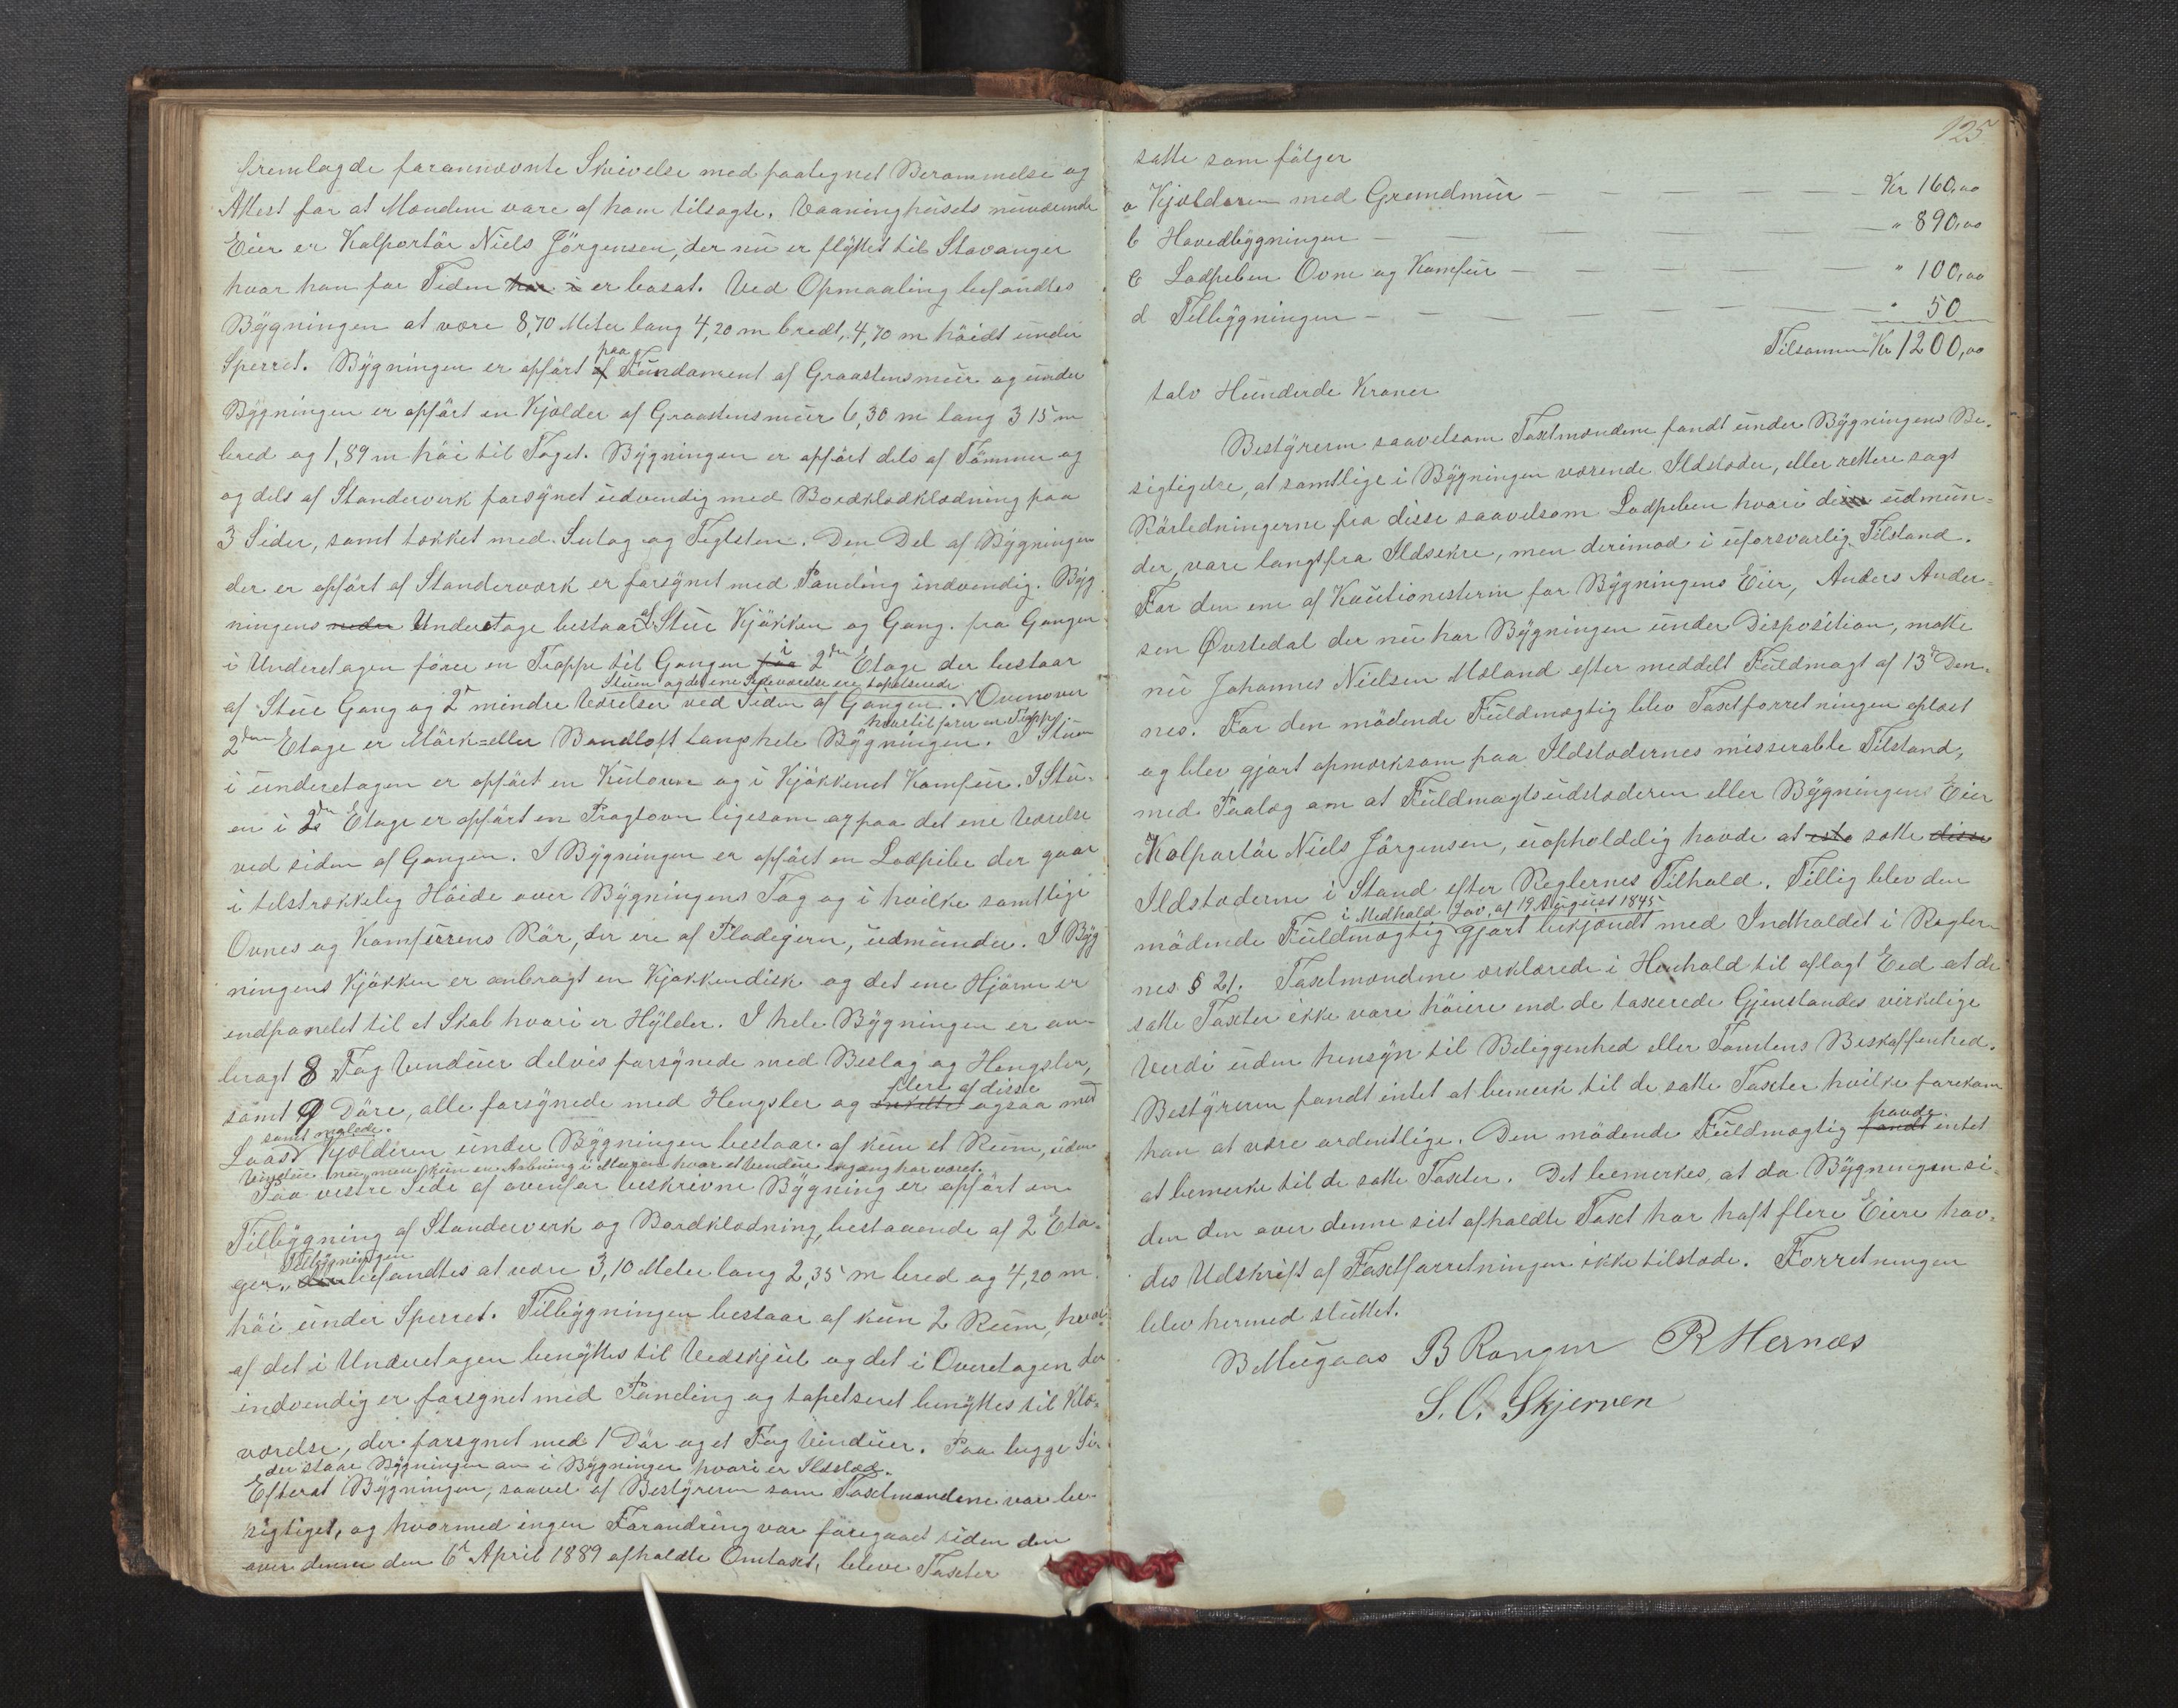 fremlagde forannævnte Skrivelse med paategnet Berammelse og
Attest for at Mændene vare af ham tilsagte. Vaaninghusets nuværende
Eier er Kolportör Niels Jörgensen, der nu er flyttet til Stavanger
hvor han for Tiden har i er bosat. Ved Opmaaling befandtes
Bygningen at være 8,70 Meter lang 4,20 m bredt, 4,70 m höidt under
paa
Sperret. Bygningen er opfört af Fundament af Graastensmur og under
Bygningen er opfört en Kjelder af Graastensmur 6,30 m lang 3 15 m
bred og 1,89 m höi til Taget. Bygningen er opfört dels af Tömmer og
og dels af Standerverk forsynet udvendig med Bordklædklædning paa
3 Sider, samt tækket med Sutag og Teglsten. Den Del af Bygningen
der er opfört af Standerværk er forsynet med Paneling indvendig. Byg
ningens nedre Underetage bestaar af Stue Kjökken og Gang. fra Gangen
i Underetagen förer en Trappe til Gangen paa i 2den Etage der bestaar
Stuen og det ene Sideværelse ere tapetserede
af Stue Gang og 2 mindre Værelser ved Siden af Gangen. Ovenover
hvortil förer en Trappe.
2den Etage er Mörk=eller Bandloft langs hele Bygningen. I Stuen
i underetagen er opfört en Kulovn og i Kjökkenet Komfur. I Stu-
en i 2den Etage er opfört en Pragtovn ligesom og paa det ene Værelse
ved siden af Gangen. I Bygningen er opfört en Lodpibe der gaar
i tilstrækkelig Höide over Bygningens Tag og i hvilke samtlige
Ovnes og Komfurens Rör, der ere af Pladejern, udmunder. I Byg
ningens Kjökken er anbragt en Kjøkkendisk og det ene Hjörne er
indpanelet til et Skab hvori er Hylder. I hele Bygningen er an-
bragt 8 Fag Venduer delvis forsynede med Beslag og Hengsler,
flere af disse
samt 9 Döre, alle forsynede med Hengsler og enkelte ogsaa med
samt malede.
Laas. Kjelderen under Bygningen bestaar af kun et Rum, uden
Vindue nu, men kun en Aabning i Muren hvor et Vindue engang har været.
Paa vestre Side af ovenfor beskrevne Bygning er opfört en
Tilbygning af Standerverk og Bordklædning, bestaaende af 2 Eta-
Tilbygningen
ger, den befandtes at være 3,10 Meter lang 2,35 m bred og 4,20 m.
höi under Sperret. Tilbygningen bestaar af kun 2 Rum, hvor-
af det i Underetagen benyttes til Vedskjul og det i Overetagen der
indvendig er forsynet med Paneling og tapetseret benyttes til Klæ-
værelse, der forsynet med 1 Dör og et Fag Vinduer. Paa begge Si-
der staar Bygningen an i Bygninger hvori er Ildsted.
Efterat Bygningen, saavel af Bestyreren som Taxtmændene var be-
sigtiget, og hvormed ingen Forandring var foregaaet siden den
over denne den 6te April 1889 afholdte Omtaxt, bleve Taxter
125
satte som fölger
a Kjælderen med Grundmur — Kr 160,00
b Hovedbygningen — " 890,00
c Lodpiben Ovne og Komfur — " 100,00
d Tilbygningen — " 50
Tilsammen Kr 1200,00
tolv Hunderde Kroner
Bestyreren saavelsom Taxtmændene fandt under Bygningens Be-
sigtigelse, at samtlige i Bygningen værende Ildsteder, eller rettere sagt
Rörledningerne fra disse saavelsom Lodpiben hvori disse udmun-
der, vare langtfra Ildsikre, men derimod i uforsvarlig Tilstand.
For den ene af Kautionisterne for Bygningens Eier, Anders Ander-
sen Øvstedal der nu har Bygningen under Disposition, mötte
nu Johannes Nielsen Mæland efter meddelt Fuldmagt af 13de Den-
nes. For den mödende Fuldmægtig blev Taxtforretningen oplæst
og blev gjort opmærksom paa Ildstedernes misserable Tilstand,
med Paalæg om at Fuldmagtsudstederen eller Bygningens Eier
Kolportör Niels Jörgensen, uopholdelig havde at sætte disse
Ildstederne i Stand efter Reglernes Tilhold. Tillig blev den
i Medhold Lov. af 19 August 1845
mödende Fuldmægtig gjort bekjendt med Indholdet i Regler-
nes § 21. Taxtmændene erklærede i Henhold til aflagt Eed at de
satte Taxter ikke vare höiere end de taxerede Gjenstandes virkelige
Verdi uden hensyn til Beliggenhed eller Tomtens Beskaffenhed.
Bestyreren fandt intet at bemerke til de satte Taxter hvilke forekom
havde
ham at være ordentlige. Den mödende Fuldmægtig fandt intet
at bemerke til de satte Taxter. Det bemerkes, at da Bygningen si-
den den over denne sist afholdte Taxt har haft flere Eiere hav-
des Udskrift af Taxtforretningen ikke tilstede. Forretningen
blev hermed sluttet.
B Mugaas B Rongve R Hernæs
S. O. Skjerven